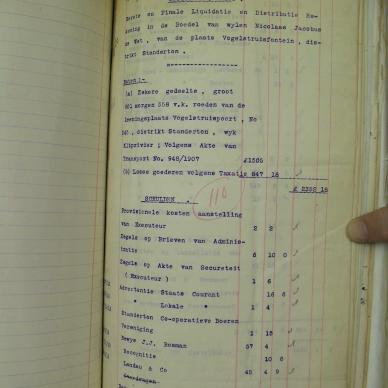 Eerste en Finale Liquidatie en Distributie Re-
kening in de Boedel van wylen Nicolaas Jacobus
de Wet, van de plaats Vogelstruisfontein, dis-
trikt Standerton.
Baten:-
(a) Zekere gedeelte, groot
601 morgen 558 v.k. roeden van de
leeningsplaats Vogelstruispoort, No
, distrikt Standerton, wyk
Kliprivier; Volgens Akte van
Transport No. 948/1907
(b) Losse goederen volgens Taxatie 847 15
110
SCHULDEN.
Provisionele kosten aanstelling
van Executeur 2 2
Zegels op Brieven van Adminis-
tratie 6 10 0
Zegels op Akte van Secureteit
(Executeur) 1 6
Advertentie Staats Courant 16 6
" Lokale " 1 4
Standerton Co-operatieve Boeren
Vereniging 1 15
Bewys J.J. Bosman 57 4
Recognitie 10 6
Landau & Co 45 4 9